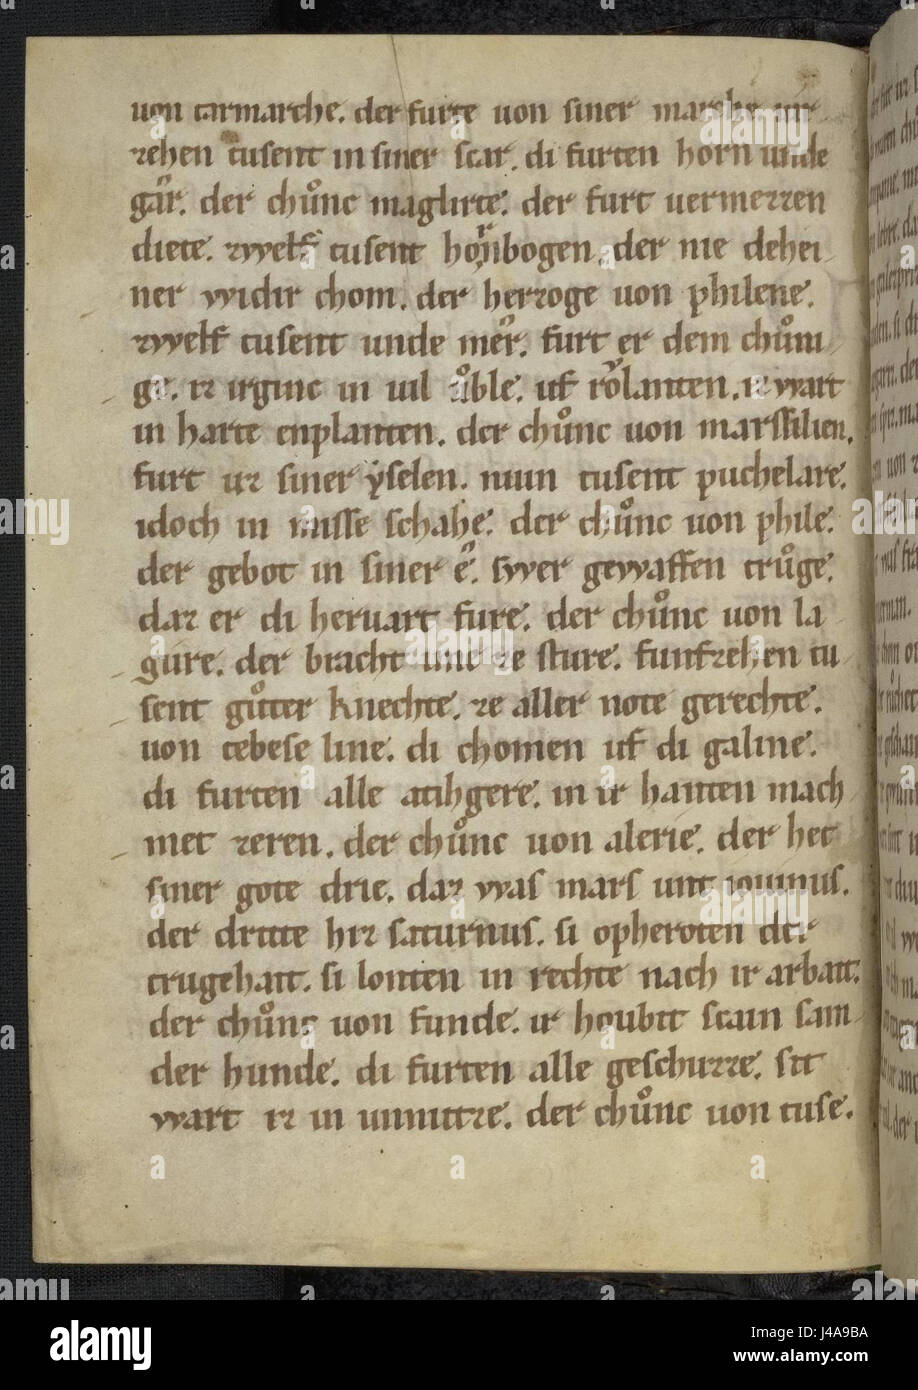 uon carmarche. der furte uon siner marche. uir
zehen tusent in siner scar. di furten horn unde
gar̊. der chůnc maglirte. der furt uermezzen
diete. zwelf tusent hornbogen. der nie dehei
ner widir chom. der herzoge uon philene.
zwelf tusent unde mer̊. furt er dem chůni
ge. iz irginc in uil ůble. uf rolanten. iz wart
in harte enplanten. der chůnc uon marssilien.
furt uz siner yselen. niun tusent puchelare.
idoch in misse schahe. der chůnc uon phile.
der gebot in siner e. swer gewaffen trůge.
daz er di heruart fure. der chůnc uon la
gure. der bracht unc ze sture. funfzehen tu
sent gůter knechte. ze aller note gerechte.
uon tebese line. di chomen uf di galine.
di furten alle atihgere. in ir hanten mach
met zeren. der chůnc uon alerie. der het
siner gote drie. daz was mars unt iouinus.
der dritte hiz saturnus. si opheroten der
trugehatt. si lonten in rechte nach ir arbatt.
der chůnc uon funde. ir houbit scain sam
der hunde. di furten alle geschuzze. sit
wart iz in unnutze. der chůnc uon tuse.
alamy
J4A9BA
www.alamy.com